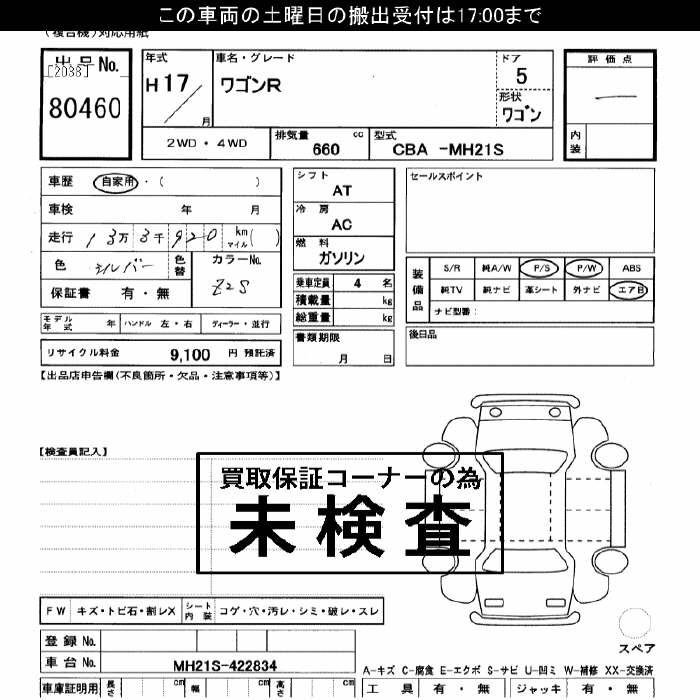 この車両の土曜日の搬出受付は17:00まで
(複合機)対応用紙
出品No.
[2038]
80460
年式
H17/月
車名・グレード
ワゴンR
ドア
5
形状
ワゴン
評価点
―
内装
2WD・4WD
排気量 660 cc
型式 CBA -MH21S
車歴 自家用・( )
車検 年 月
走行 13万3千920 km マイル( )
色 シルバー 色替
カラーNo. Z2S
保証書 有・無
シフト
AT
冷房
AC
燃料
ガソリン
乗車定員 4 名
積載量 kg
総重量 kg
書類期限
月 日
セールスポイント
装備品
S/R 純A/W P/S P/W ABS
純TV 純ナビ 革シート 外ナビ エアB
ナビ型番:
後日品
モデル年式 年 ハンドル 左・右 ディーラー・並行
リサイクル料金 9,100 円 預託済
【出品店申告欄(不良箇所・欠品・注意事項等)】
【検査員記入】
買取保証コーナーの為
未検査
FW キズ・トビ石・割レX シート内装 コゲ・穴・汚レ・シミ・破レ・スレ
登録No.
車台No. MH21S-422834
スペア
A-キズ C-腐食 E-エクボ S-サビ U-凹ミ W-補修 XX-交換済
車庫証明用 長さ cm 幅 cm 高さ cm
工具 有・無 ジャッキ 有・無